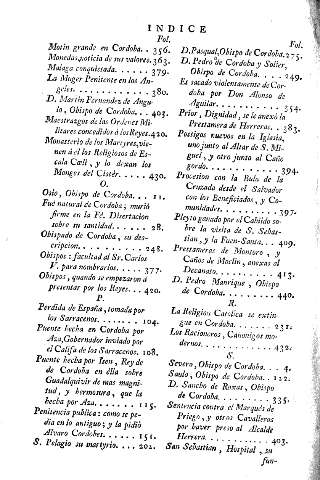 INDICE
Fol.
Motin grande en Cordoba. . 356.
Monedas, noticia de sus valores. 363.
Malaga conquistada. . . . . . 379.
La Muger Penitente en los An-
geles. . . . . . . . . . . . 380.
D. Martin Fernandez de Angu-
lo, Obispo de Cordoba. . . 403.
Maestrazgos de las Ordenes Mi-
litares concedidos á los Reyes. 420.
Monasterio de los Martyres, vie-
nen á él los Religiosos de Es-
cala Cœli, y lo dexan los
Monges del Cistér. . . . . 430.
O.
Osio, Obispo de Cordoba. . . 11.
Fué natural de Cordoba; murió
firme en la Fé. Disertacion
sobre su santidad. . . . . . 28.
Obispado de Cordoba, su des-
cripcion. . . . . . . . . . 248.
Obispos: facultad al Sr. Carlos
V. para nombrarlos. . . . . 377.
Obispos, quando se empezaron á
presentar por los Reyes. . . 420.
P.
Perdida de España, tomada por
los Sarracenos. . . . . . . 104.
Puente hecha en Cordoba por
Aza, Gobernador inviado por
el Califa de los Sarracenos. 108.
Puente hecha por Isen, Rey de
de Cordoba en élla sobre
Guadalquivir de mas magni-
tud, y hermosura, que la
hecha por Aza. . . . . . . 115.
Penitencia publica: como se pe-
dia en lo antiguo; y la pidió
Alvaro Cordobes. . . . . . 151.
S. Pelagio su martyrio. . . . 202.
Fol.
D. Pasqual, Obispo de Cordoba. 275.
D. Pedro de Cordoba y Solier,
Obispo de Cordoba. . . . . 249.
Es sacado violentamente de Cor-
doba por Don Alonso de
Aguilar. . . . . . . . . . 354.
Prior, Dignidad, se le anexó la
Prestamera de Herreras. . . 383.
Postigos nuevos en la Iglesia,
uno junto al Altar de S. Mi-
guel, y otro junto al Caño
gordo. . . . . . . . . . . 394.
Procesion con la Bula de la
Cruzada desde el Salvador
con los Beneficiados, y Co-
munidades. . . . . . . . . 397.
Pleyto ganado por el Cabildo so-
bre la visita de S. Sebas-
tian, y la Fuen-Santa. . . 409.
Prestameras de Montoro, y
Caños de Maclin, anexas al
Decanato. . . . . . . . . . 413.
D. Pedro Manrique, Obispo
de Cordoba. . . . . . . . . 440.
R.
La Religion Catolica se extin-
gue en Cordoba. . . . . . . 231.
Los Racioneros, Canonigos mo-
dernos. . . . . . . . . . . 432.
S.
Severo, Obispo de Cordoba. . . 4.
Saulo, Obispo de Cordoba. . . 122.
D. Sancho de Roxas, Obispo
de Cordoba. . . . . . . . . 335.
Sentencia contra el Marqués de
Priego, y otros Cavalleros
por haver preso al Alcalde
Herrera. . . . . . . . . . 403.
San Sebastian, Hospital, su
fun-